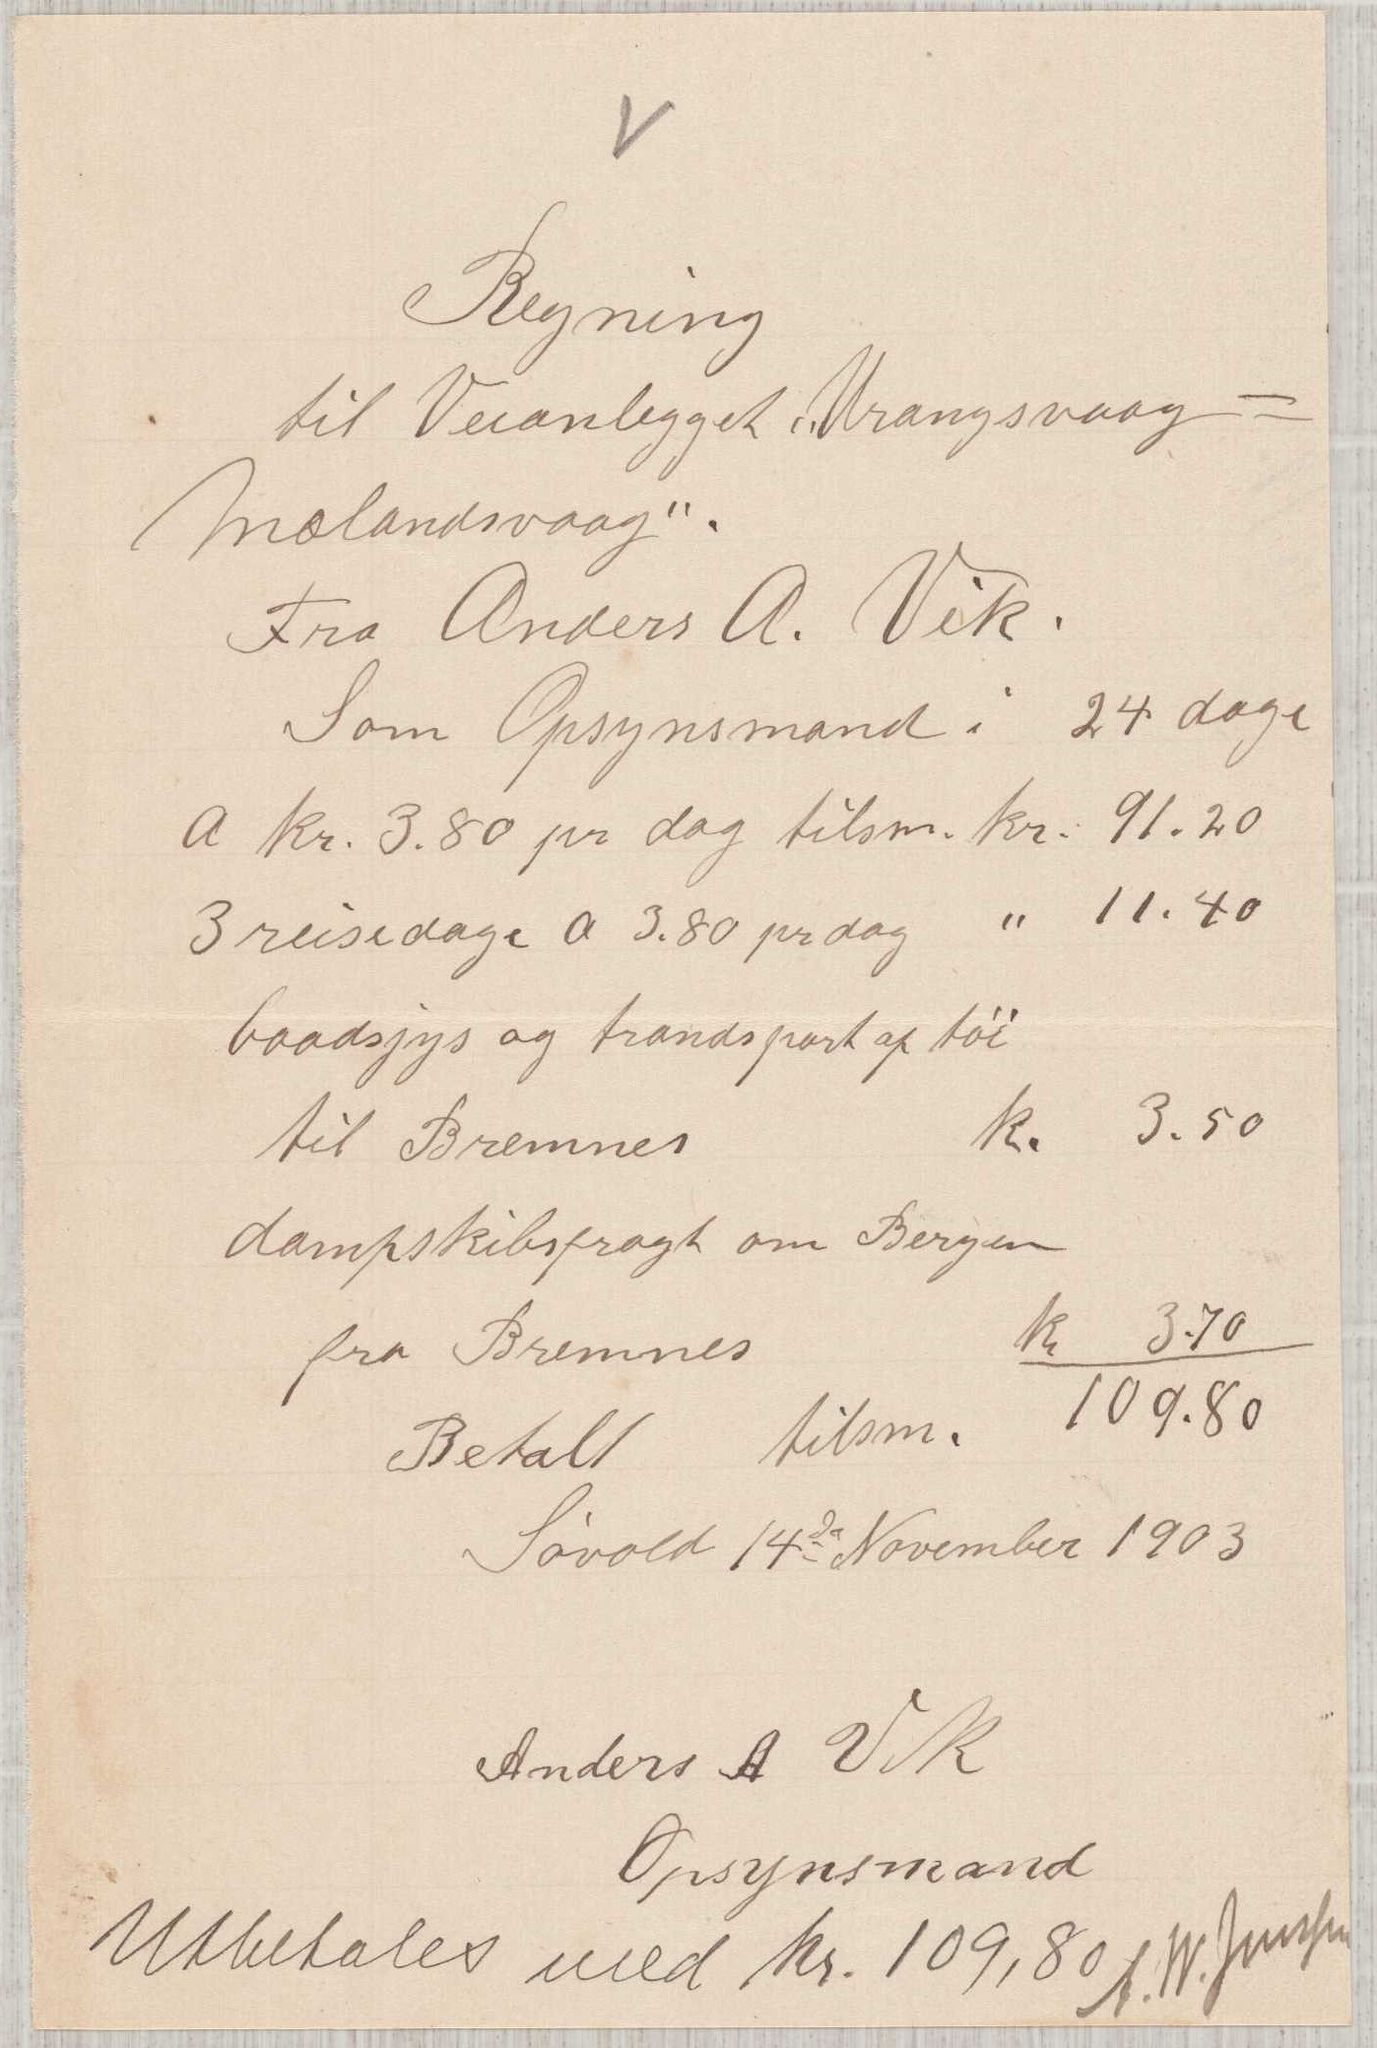 V
Regning
til Veianlegget „Urangsvaag =
Mælandsvaag".
Fra Anders A. Vik.
Som Opsynsmand i 24 dage
a kr. 3.80 pr dag tilsm. kr. 91.20
3 reisedage a 3.80 pr dag " 11.40
baadsjys og trandsport af töi
til Bremnes k. 3.50
dampskibsfragt om Bergen
fra Bremnes kr 3.70
Betalt tilsm. 109.80
Sövold 14de November 1903
Anders A Vik
Opsynsmand
Utbetales med kr. 109,80 A.W.